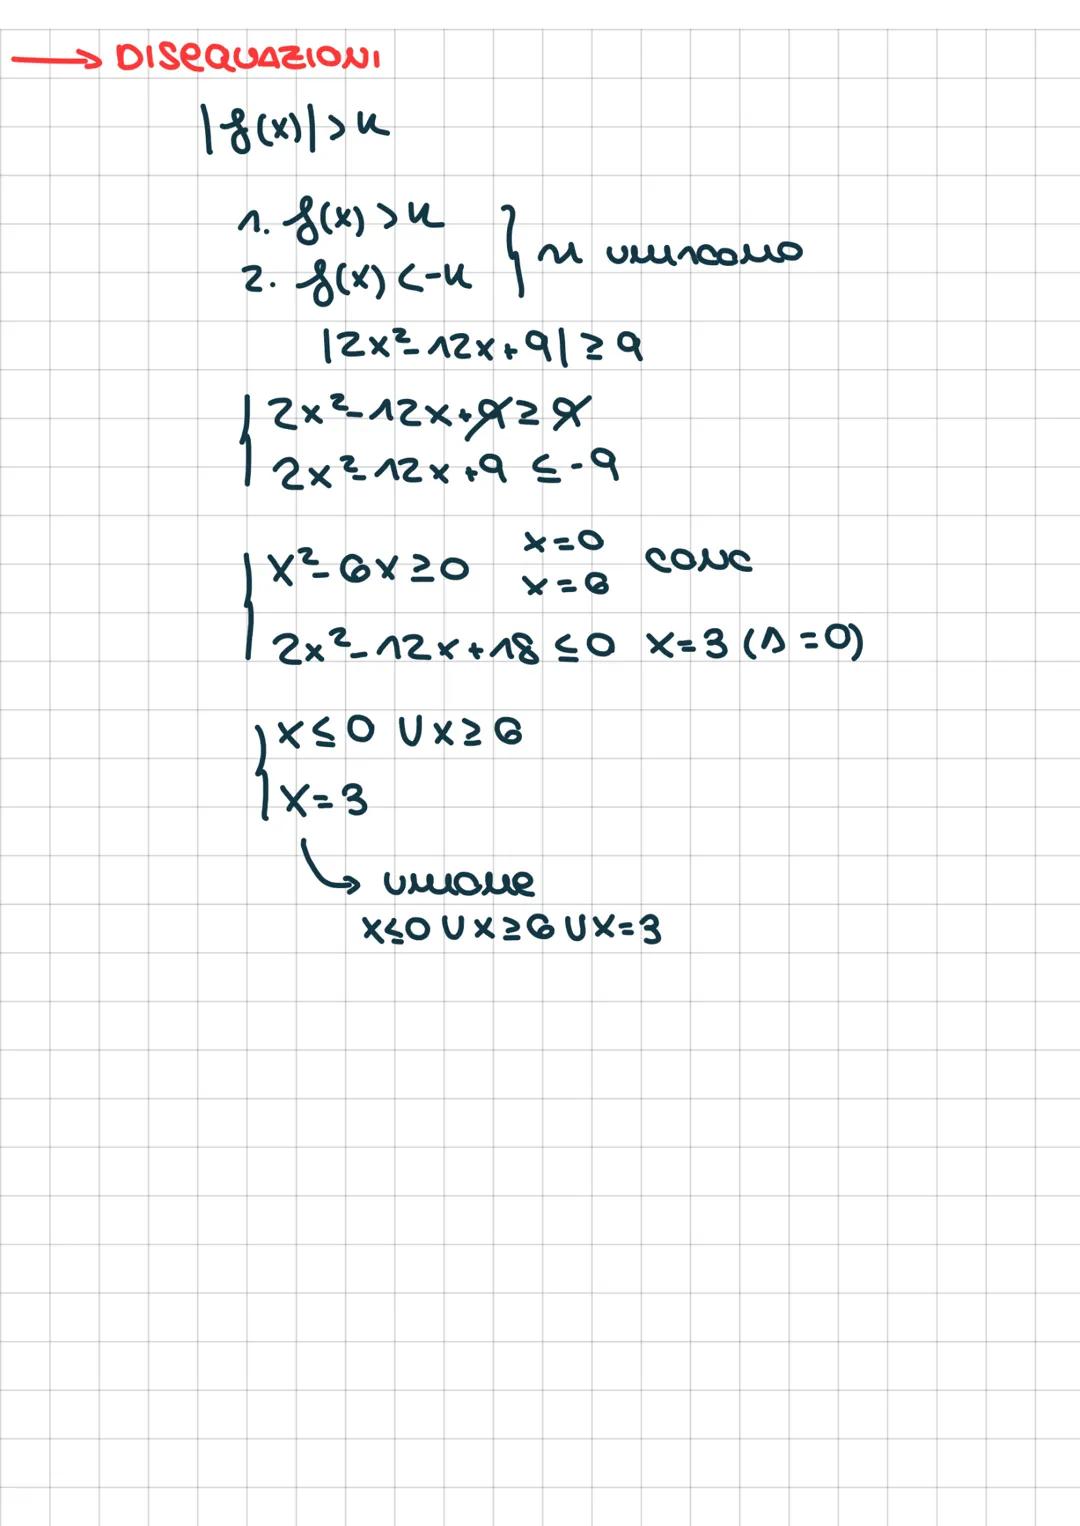 → DISEQUAZIONI
|f(x)|>k
1. f(x)>k
2. f(x)<-k } si uniscono
|2x²-12x+9|≥9
{ 2x²-12x+9≥9
2x²-12x+9≤-9
{ x²-6x≥0 x=0 x=6 conc
2x²-12x+18≤0 x=3 (Δ=0)
{ x≤0 ∪ x≥6
x=3
→ unione
x≤0 ∪ x≥6 ∪ x=3